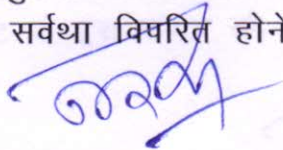 सर्वथा विपरित होने